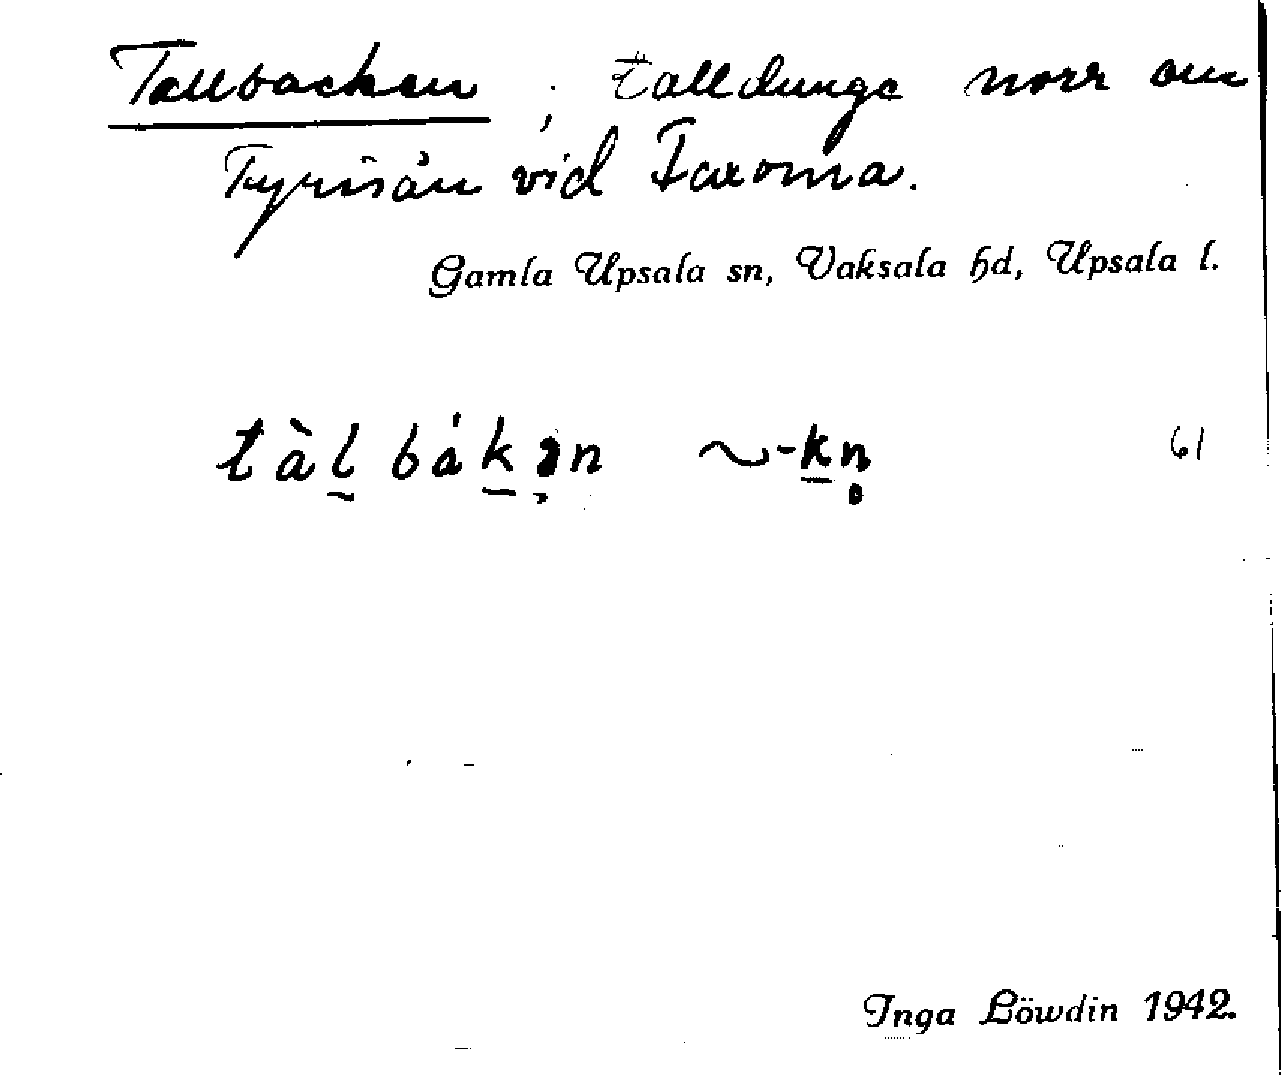 Tallbacken ; talldunge norr om
Fyrisån vid Faxoma.
Gamla Upsala sn, Vaksala hd, Upsala l.
tàl̰ bákə̣n ~ -kn̥ 61
Inga Löwdin 1942.